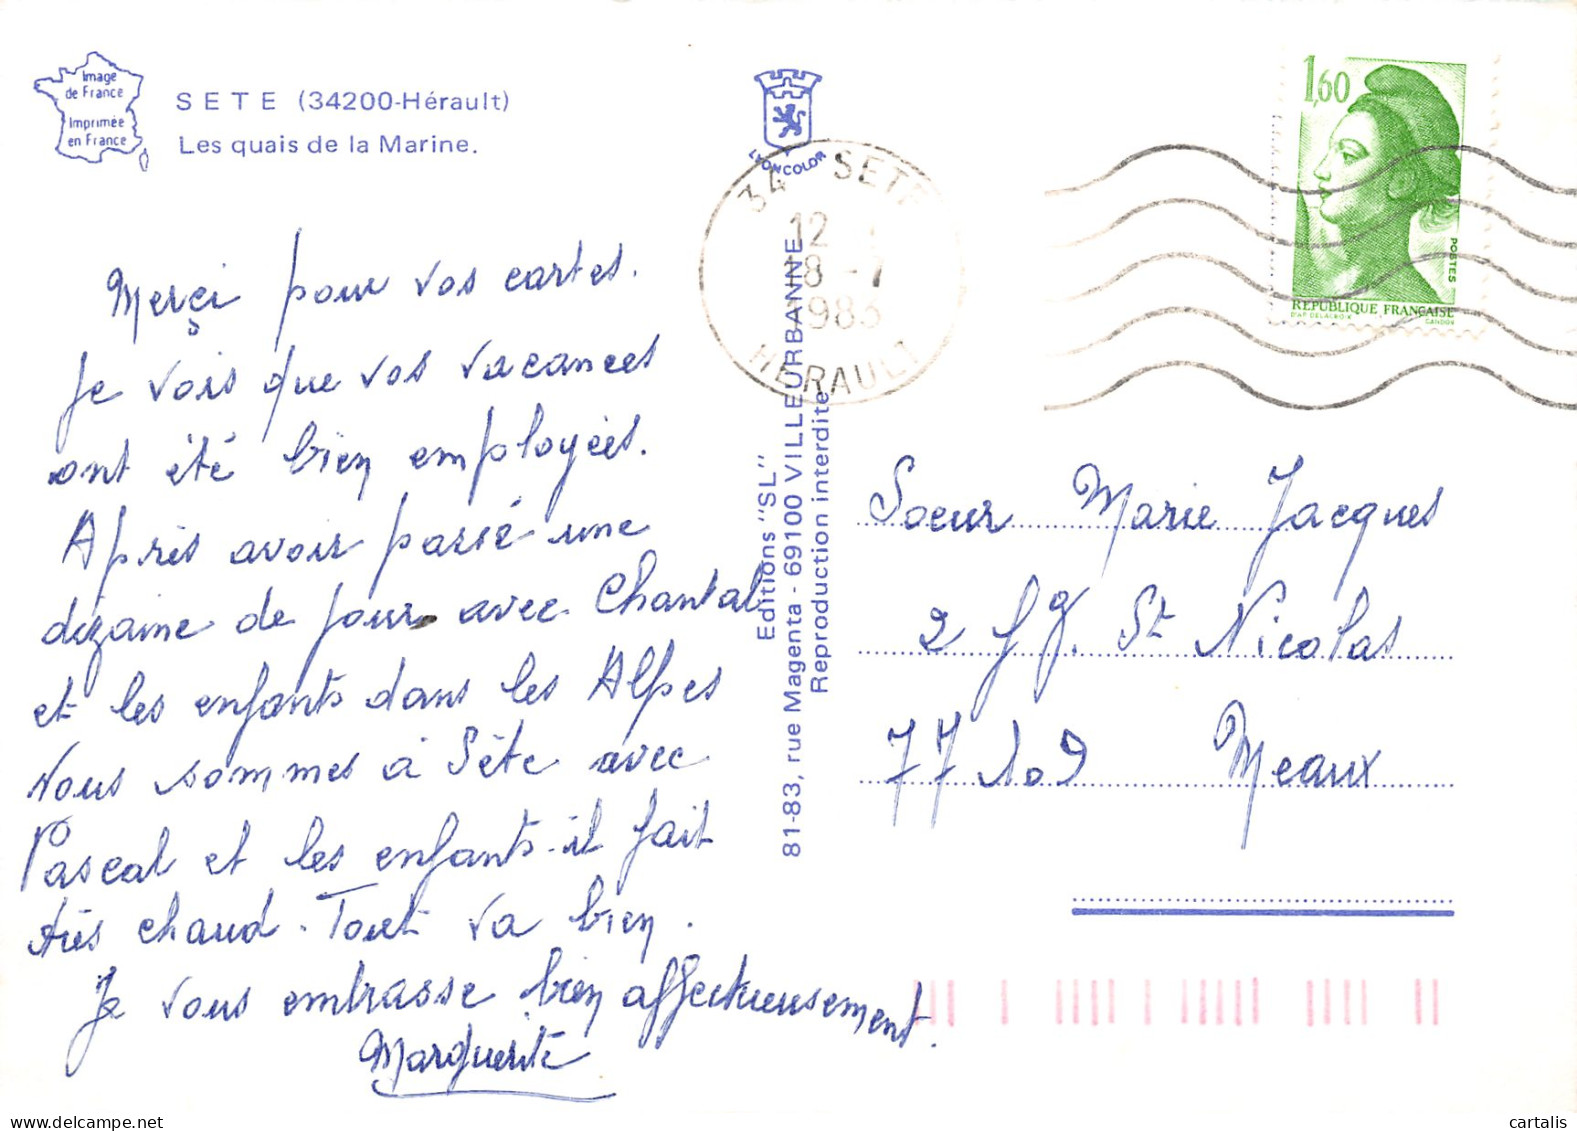 Image
de France
Imprimée
en France
SETE (34200-Hérault)
Les quais de la Marine.
Merçi pour vos cartes.
Je vois que vos vacances
ont été bien employées.
Après avoir passé une
dizaine de jours avec Chantal
et les enfants dans les Alpes
Nous sommes à Sète avec
Pascal et les enfants. il fait
très chaud. Tout va bien.
Je vous embrasse bien affectueusement.
Marguerite
LYONCOLOR
34 SETE
12
18 -7
1983
HERAULT
Editions "SL"
81-83, rue Magenta - 69100 VILLEURBANNE
Reproduction interdite
1,60
POSTES
REPUBLIQUE FRANÇAISE
D'AP. DELACROIX
GANDON
Soeur Marie Jacques
2 fg. St Nicolas
77109 Meaux
cartalis